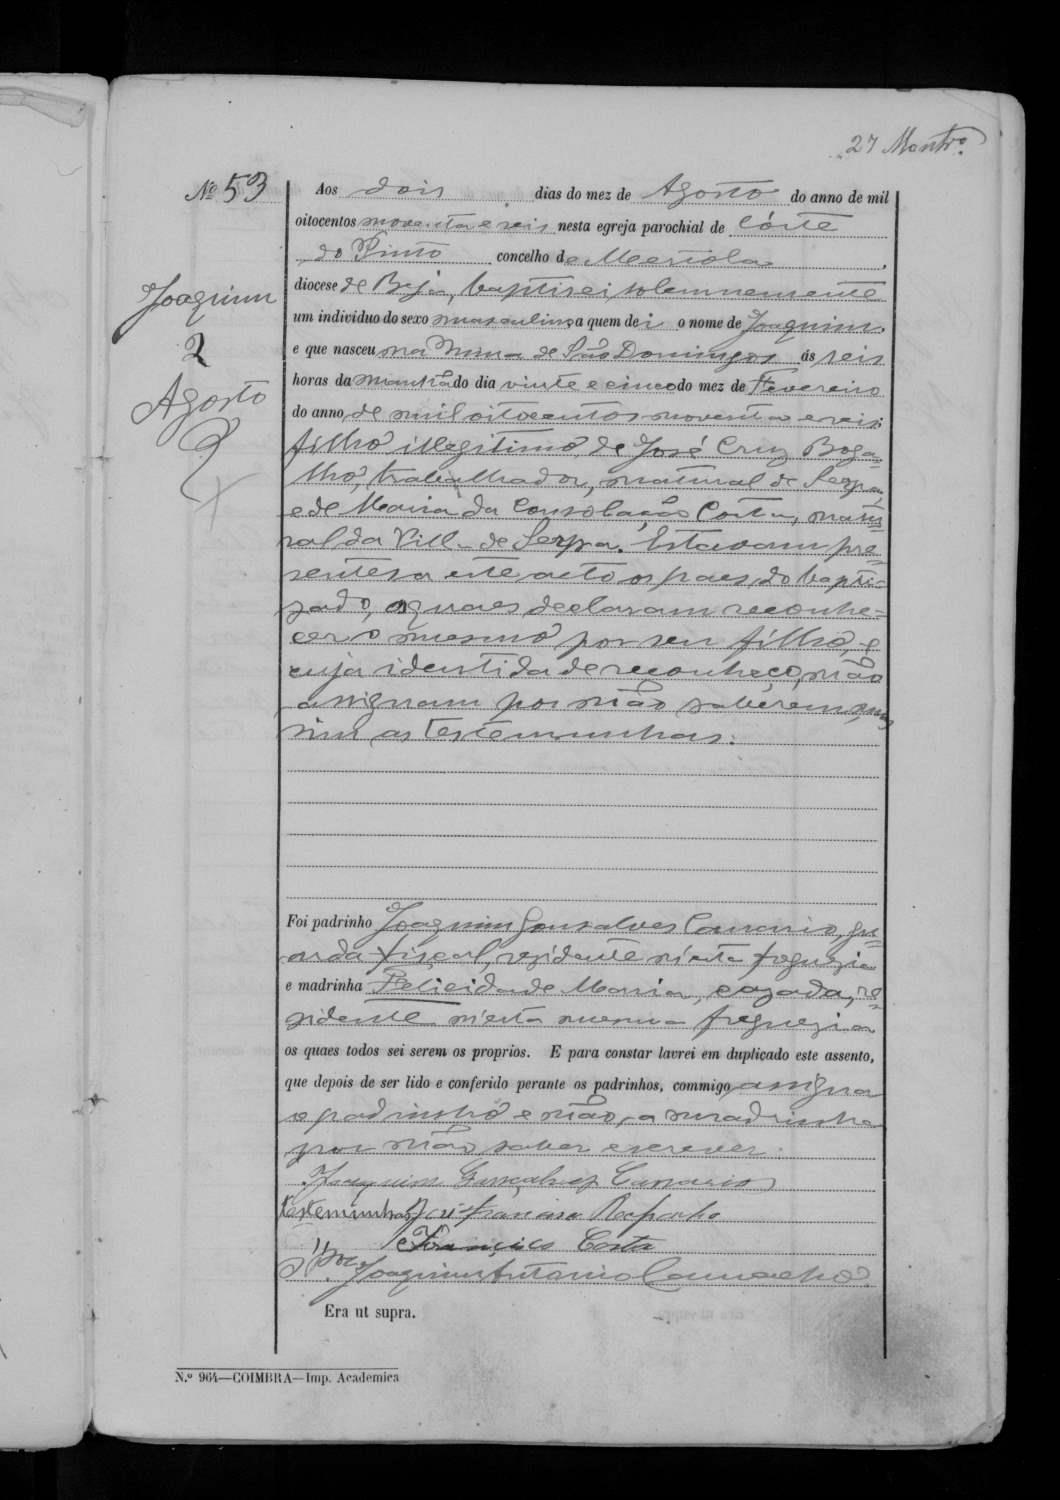 27 Montro.
Nº 53
Joaquim
2
Agosto
Aos dois dias do mez de Agosto do anno de mil
oitocentos noventa e seis nesta egreja parochial de Côrte
do Pinto concelho de Mertola,
diocese de Beja, baptisei solemnemente
um individuo do sexo masculino a quem dei o nome de Joaquim
e que nasceu na Mina de São Domingos ás seis
horas da manhã do dia vinte e cinco do mez de Fevereiro
do anno de mil oitocentos noventa e seis;
filho illegitimo de José Cruz Boga-
lho, trabalhador, natural de Serpa,
e de Maria da Consolação Costa, natu-
ral da Villa de Serpa. Estavam pre-
sentes a este acto os paes do bapti-
zado, os quaes declaram reconhe-
cer o mesmo por seu filho, e
cuja identidade reconheço, não
assignam por não saberem, mas
sim as testemunhas.
Foi padrinho Joaquim Gonsalves Canario, gu-
arda fiscal, rezidente n'esta freguezia
e madrinha Felicidade Maria, cazada, re-
zidente n'esta mesma freguezia
os quaes todos sei serem os proprios. E para constar lavrei em duplicado este assento,
que depois de ser lido e conferido perante os padrinhos, commigo assigna
o padrinho e não, a madrinha
por não saber escrever.
Joaquim Gonçalves Canario
Testemunhas, José Francisco
" Francisco Costa
O Joaquim Antonio
Era ut supra.
N.º 964—COIMBRA—Imp. Academica